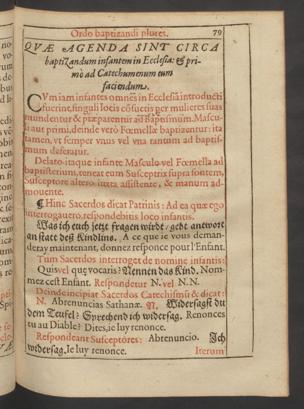 Ordo baptizandi plures. 79
QVÆ AGENDA SINT CIRCA
baptizandum infantem in Ecclesia: & pri-
mò ad Catechumenum eum
faciendum.
CVm iam infantes omnes in Ecclesiā introducti
fuerint, singuli locis cōsuetis per mulieres suas
mundentur & præparentir ad Baptismum. Mascu-
li aut primi, deinde verò Fœmellæ baptizentur: ita
tamen, vt semper vnus vel vna tantum ad baptis-
mum deferatur.
Delato itaque infante Masculo vel Fœmella ad
baptisterium, teneat eum Susceptrix supra fontem,
Susceptore altero iuxta assistente, & manum ad-
mouente.
¶ Hinc Sacerdos dicat Patrinis: Ad ea quæ ego
interrogauero, respondebitis loco infantis.
Was ich euch jetzt fragen wirdt / gebt antwort
an statt deß Kindlins. A ce que ie vous deman-
deray maintenant, donnez responce pour l'Enfant.
Tum Sacerdos interroget de nomine infantis:
Quis vel quę vocaris? Nennen das Kind. Nom-
mez cest Enfant. Respondetur N. vel N. N.
Deinde incipiat Sacerdos Catechismū & dicat:
N. Abrenuncias Sathanæ. N. Widersagst du
dem Teufel? Sprechend ich widersag. Renonces
tu au Diable? Dites, ie luy renonce.
Respondeant Susceptores: Abrenuncio. Ich
widersag, Ie luy renonce. Iterum